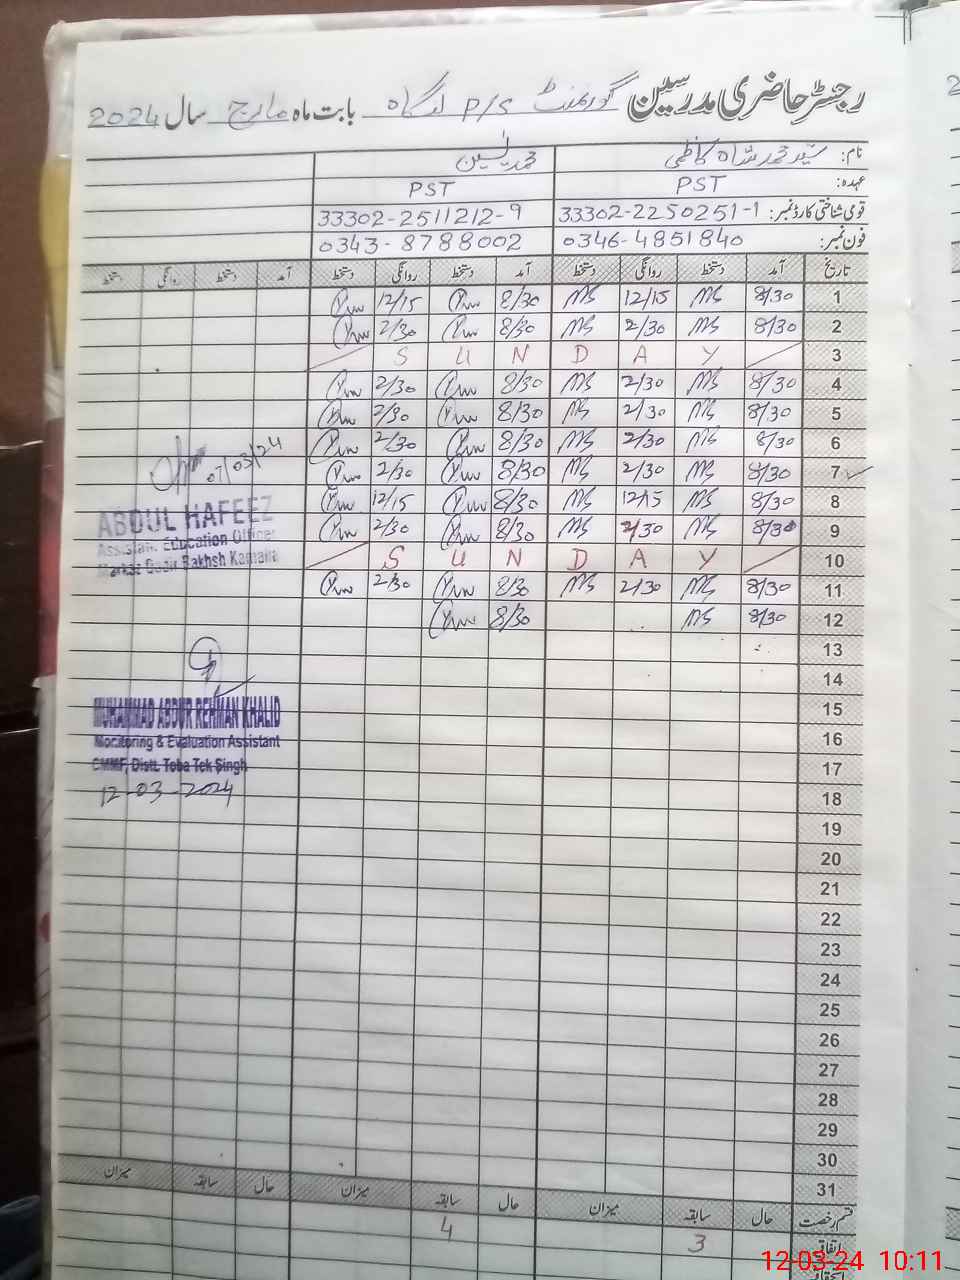 رجسٹر حاضری مدرسین گورنمنٹ P/S درگاہ بابت ماہ مارچ سال 2024
نام: سید محمد شاہ کاظمی محمد یٰسین
عہدہ: PST PST
قومی شناختی کارڈ نمبر: 33302-2250251-1 33302-2511212-9
فون نمبر: 0346-4851840 0343-8788002
تاریخ آمد دستخط روانگی دستخط آمد دستخط روانگی دستخط آمد دستخط روانگی دستخط
1 8/30 MS 12/15 MS 8/30 12/15
2 8/30 MS 2/30 MS 8/30 2/30
3 S U N D A Y
4 8/30 MS 2/30 MS 8/30 2/30
5 8/30 MS 2/30 MS 8/30 2/30
6 8/30 MS 2/30 MS 8/30 2/30
7 8/30 MS 2/30 MS 8/30 2/30
07/03/24
8 8/30 MS 12/15 MS 8/30 12/15
ABDUL HAFEEZ
9 8/30 MS 2/30 MS 8/30 2/30
Assistant Education Officer
10 S U N D A Y
Markaz Qadir Bakhsh Kamana
11 8/30 MS 2/30 MS 8/30 2/30
12 8/30 MS 8/30
13
14
15
MUHAMMAD ABDUR REHMAN KHALID
16
Monitoring & Evaluation Assistant
17
CMMF, Distt. Toba Tek Singh
18
12-03-2024
19
20
21
22
23
24
25
26
27
28
29
30
31
قسم رخصت حال سابقہ میزان حال سابقہ میزان حال سابقہ میزان
اتفاقیہ 3 4
12-03-24 10:11